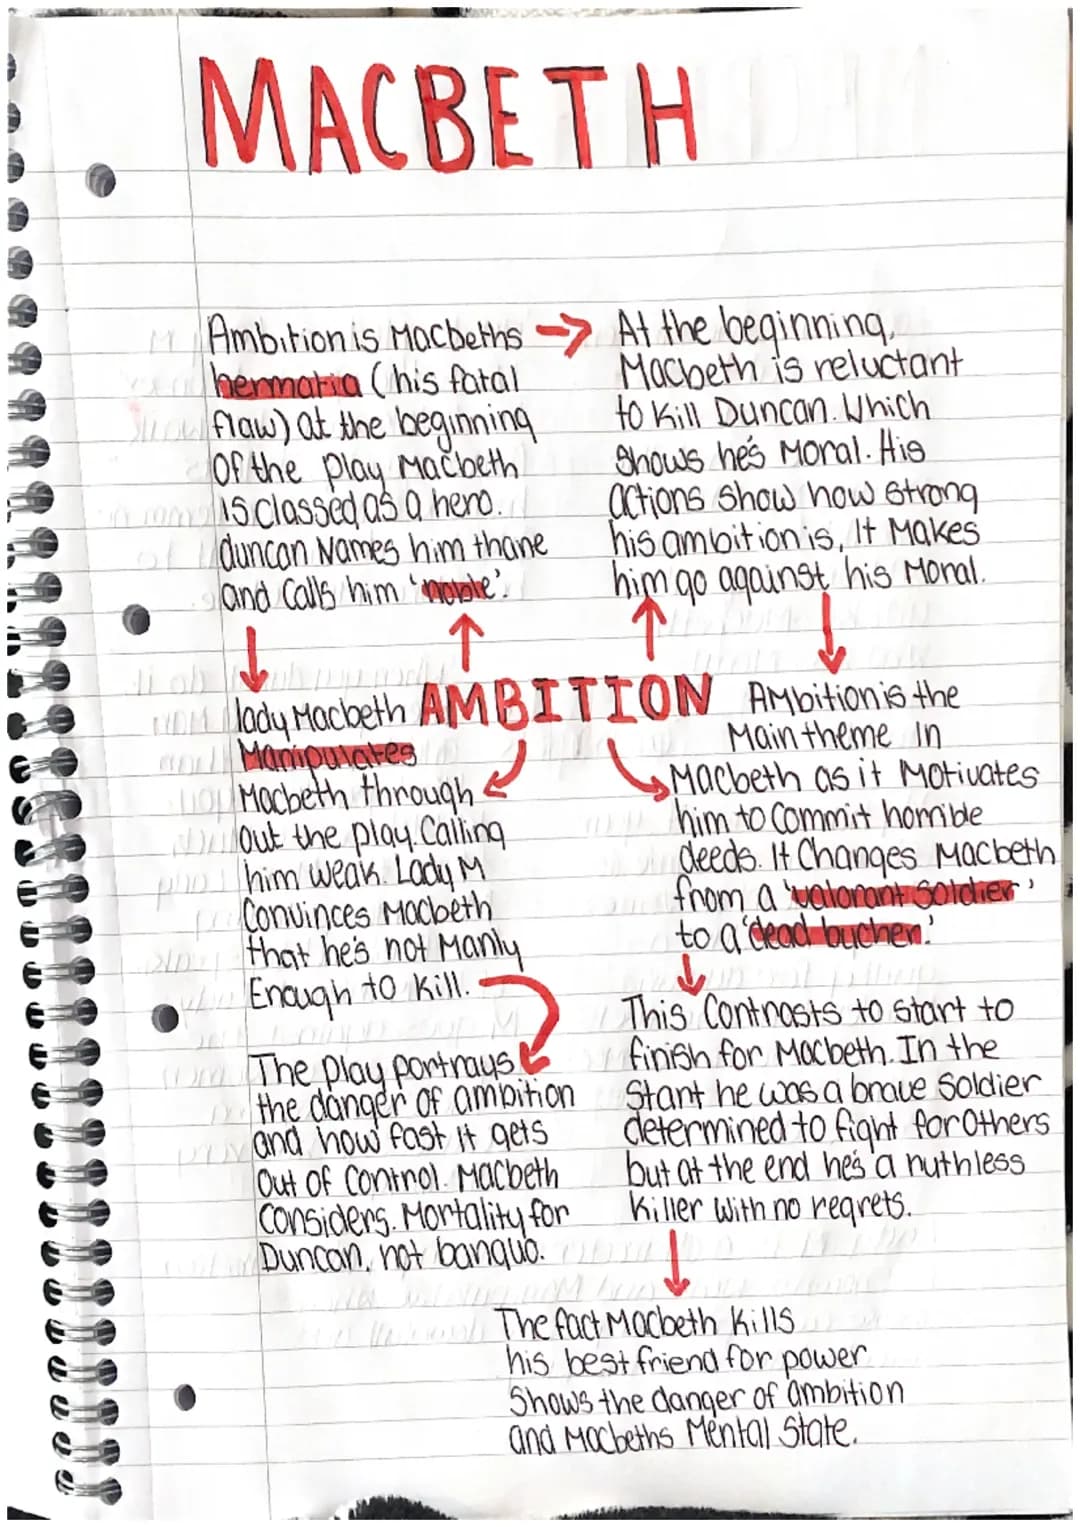 MACBETH
Ambition is Macbeths →
hermatia (his fatal
flaw) at the beginning
Of the play Macbeth
is classed as a hero.
duncan Names him thane
and Calls him 'noble'.
At the beginning,
Macbeth is reluctant
to Kill Duncan. Which
Shows he's Moral. His
actions show how strong
his ambition is, It Makes
him go against his Moral.
AMBITION
lady Macbeth
Manipulates
Macbeth through
Out the play. Calling
him weak. Lady M
Convinces Macbeth
that he's not Manly
Enough to kill.
The Play portrays
the danger of ambition
and how fast it gets
Out of Control. Macbeth
Considers. Mortality for
Duncan, not banquo.
Ambition is the
Main theme In
Macbeth as it Motivates
him to Commit horrible
deeds. It Changes Macbeth
from a 'valorant Soldier'
to a 'dead bucher.'
This Contrasts to start to
finish for Macbeth. In the
Start he was a brave Soldier
determined to fight for Others
but at the end he's a ruthless
Killer with no regrets.
The fact Macbeth Kills
his best friend for power
Shows the danger of ambition
and Macbeths Mental State.